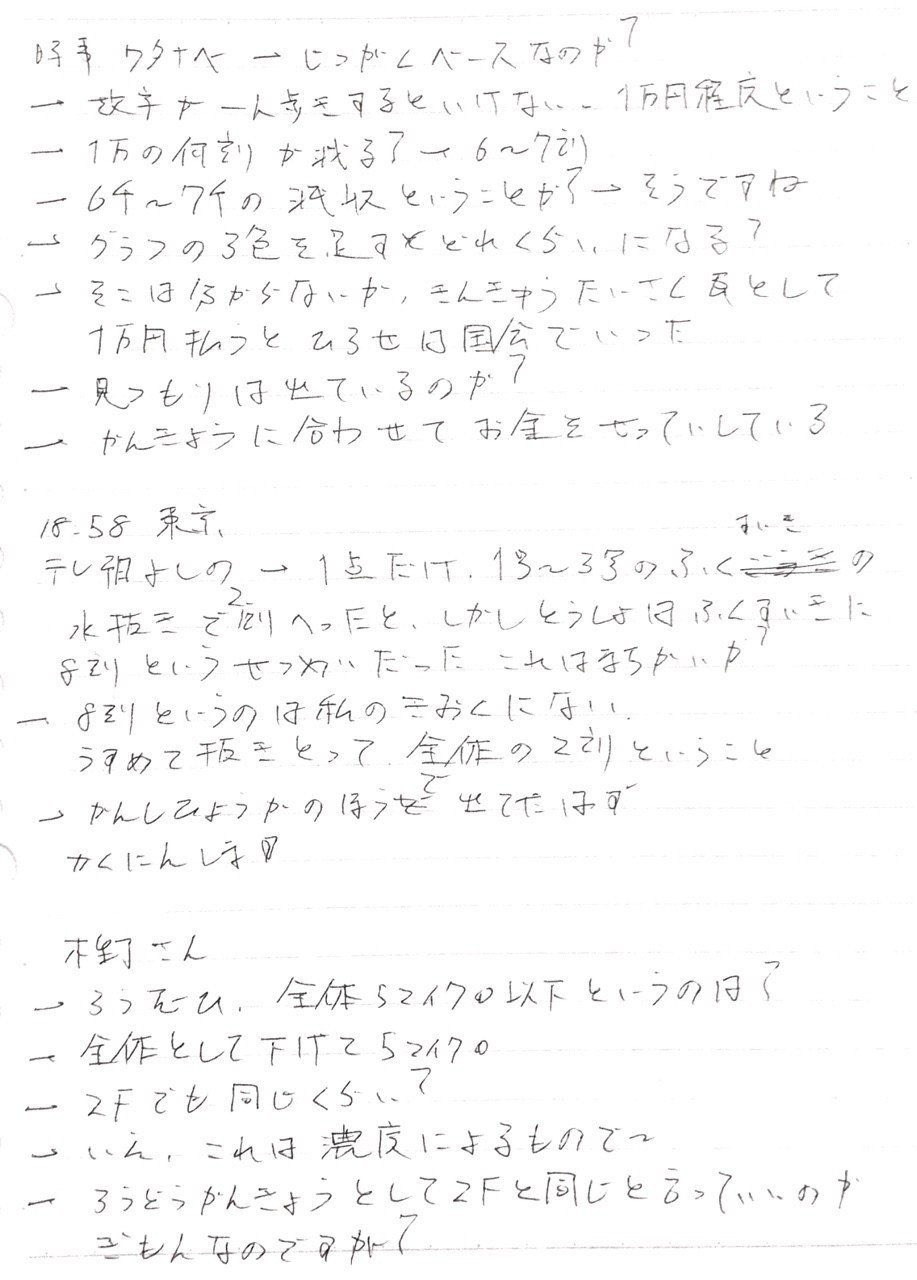 時事 ワタナベ → じつがくベースなのか?
→ 数字が一人歩きするといけない。1万円程度ということ
→ 1万の何割が減る? → 6～7割
→ 6千～7千の減収ということか? → そうですね
→ グラフの3色を足すとどれくらいになる?
→ そこは分からないが、きんきゅうたいさく費として
1万円払うとひろせは国会でいった
→ 見つもりは出ているのか?
→ かんきょうに合わせてお金をせっていしている
18.58 東京、
すいき
テレ朝よしの → 1点だけ、1号～3号のふくごうきの
2
水抜きで割へったと、しかしとうしょはふくすいきに
8割というせつめいだった これはまちがいか?
→ 8割というのは私のきおくにない。
うすめて抜きとって全体の2割ということ
→ かんしひょうかのほうで出てたはず
かくにんします
木野さん
→ ろうむひ、全体5マイクロ以下というのは?
→ 全体として下げて5マイクロ
→ 2Fでも同じくらい?
→ いえ、これは濃度によるもので～
→ ろうどうかんきょうとして2Fと同じと言っていいのか
ぎもんなのですが?